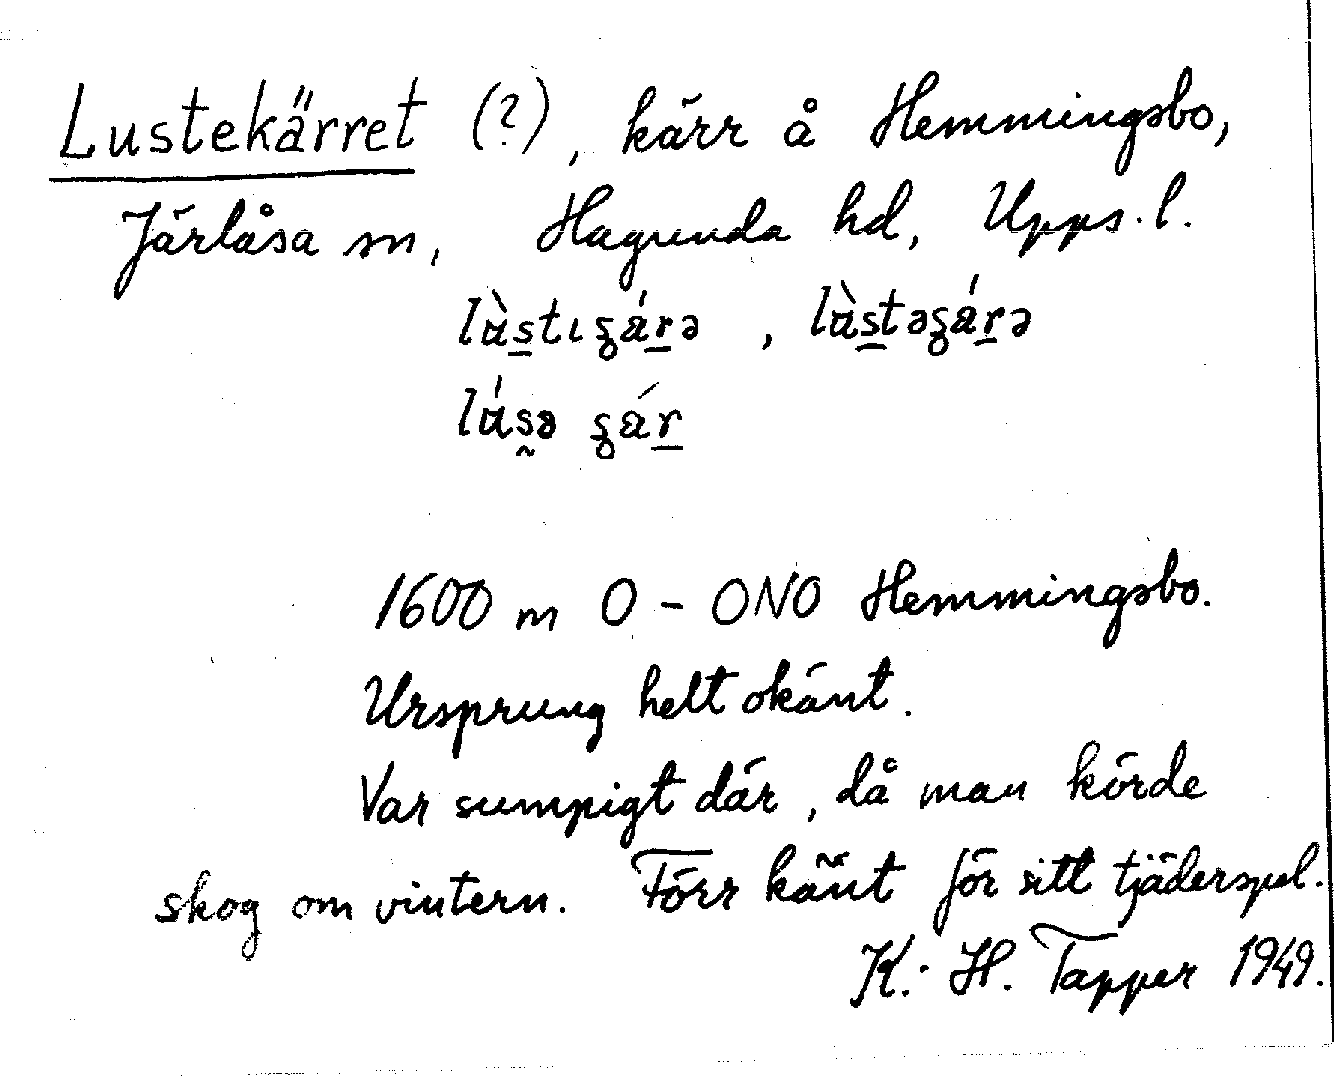 Lustekärret (?), kärr å Hemmingsbo,
Järlåsa sn, Hagunda hd, Upps. l.
1600 m O - ONO Hemmingsbo.
Ursprung helt okänt.
Var sumpigt där, då man körde
skog om vintern. Förr känt för sitt tjäderspel.
K.-H. Tapper 1949.